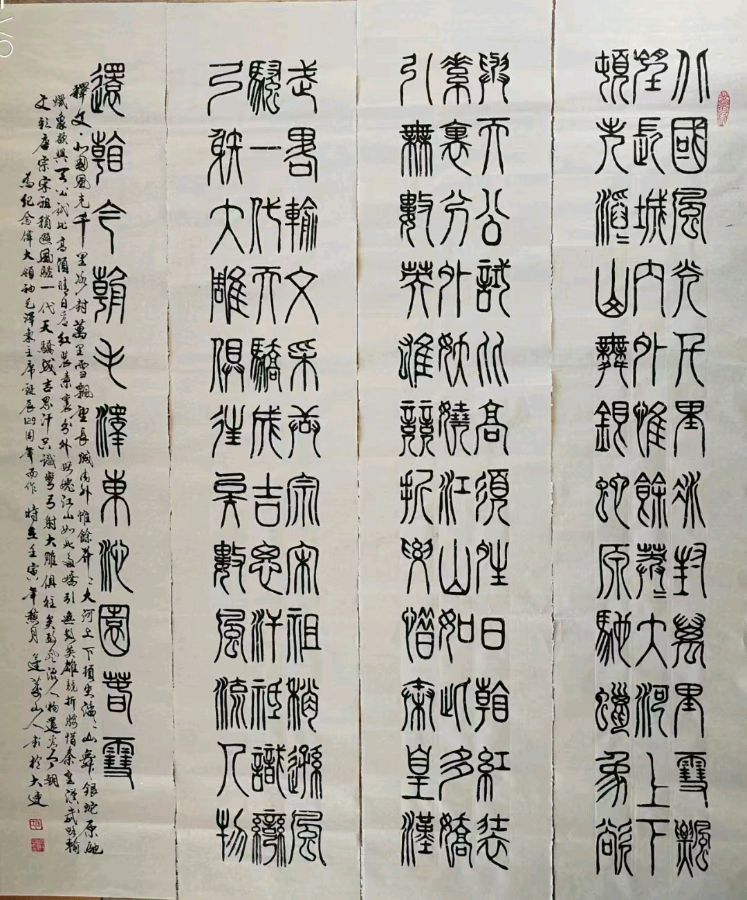 北國風光千里冰封萬里雪飄
望長城內外惟餘莽〻大河上下
頓失滔〻山舞銀蛇原馳蠟象欲
與天公試比高須晴日看紅裝
素裹分外妖嬈江山如此多嬌
引無數英雄競折腰惜秦皇漢
武略輸文采唐宗宋祖稍遜風
騷一代天驕成吉思汗祗識彎
弓射大雕俱往矣數風流人物
還看今朝毛澤東沁園春雪
釋文·北國風光千里冰封萬里雪飄望長城內外惟餘莽〻大河上下頓失滔〻山舞銀蛇原馳
蠟象欲與天公試比高須晴日看紅裝素裹分外妖嬈江山如此多嬌引無數英雄競折腰惜秦皇漢武略輸
文采唐宗宋祖稍遜風騷一代天驕成吉思汗只識彎弓射大雕俱往矣數風流人物還看今朝
為紀念偉大領袖毛澤東主席誕辰129周年而作 時在壬寅年 月 山人書於大連